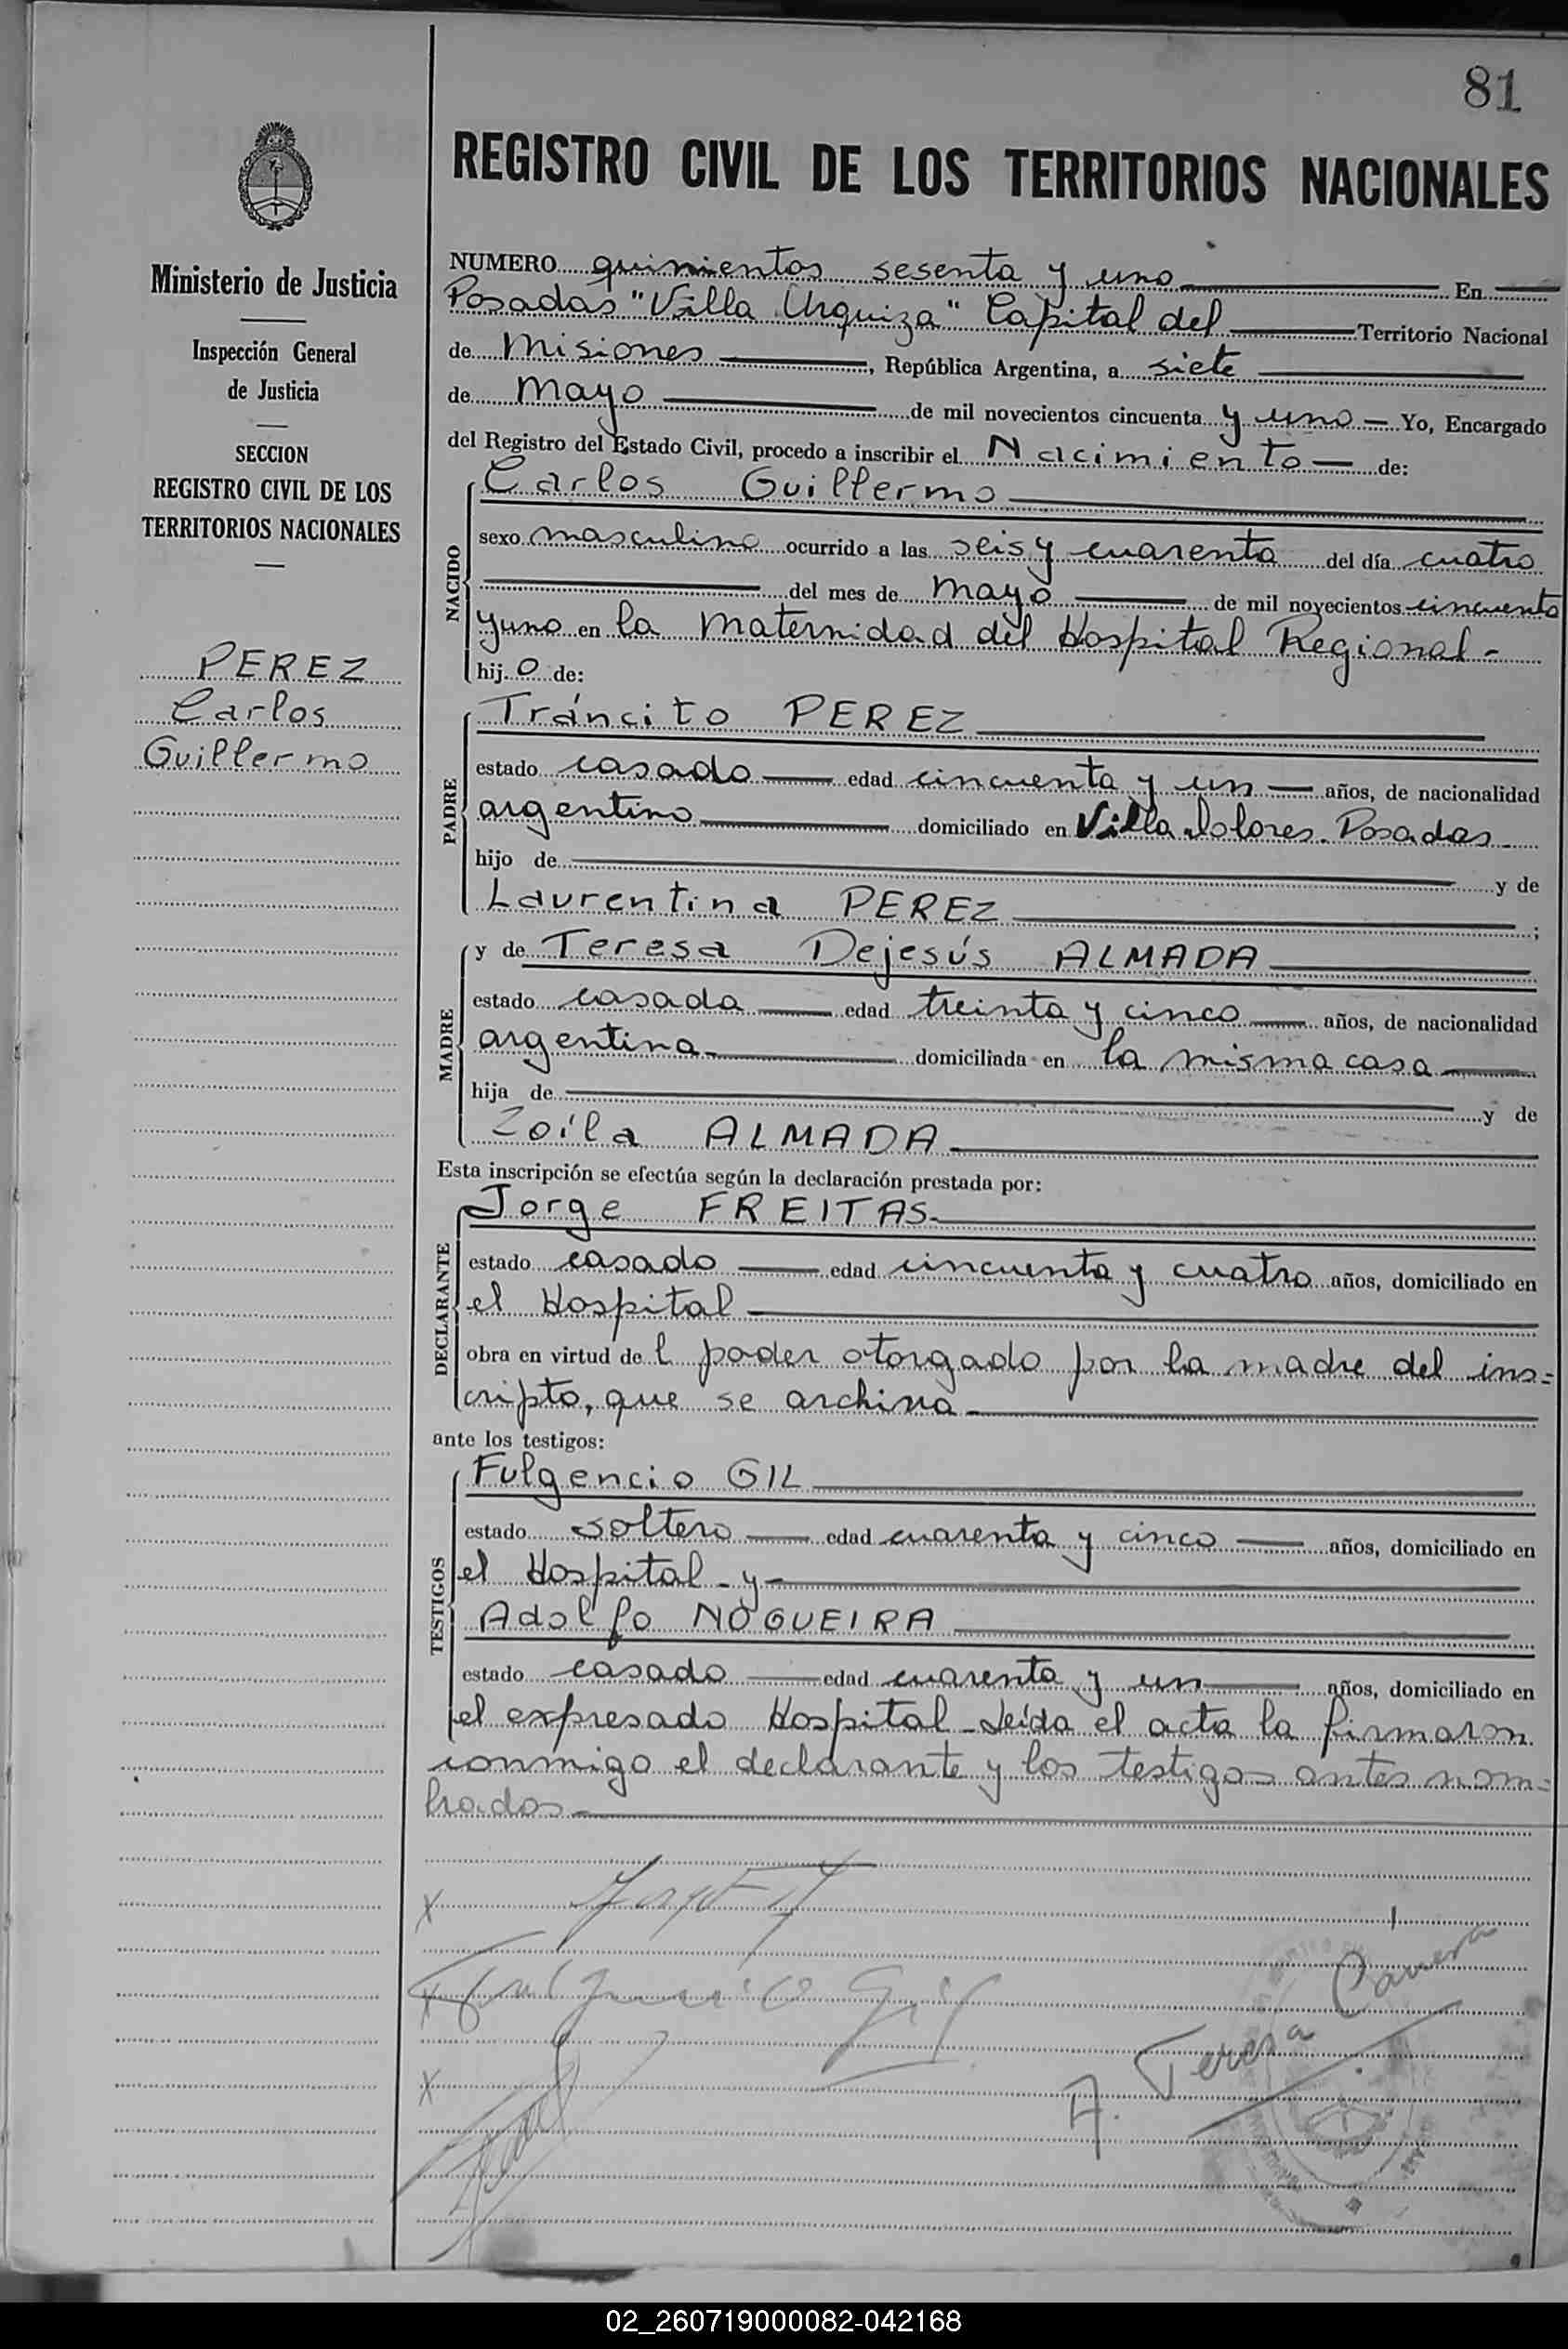 81
REGISTRO CIVIL DE LOS TERRITORIOS NACIONALES
Ministerio de Justicia
Inspección General
de Justicia
SECCION
REGISTRO CIVIL DE LOS
TERRITORIOS NACIONALES
PEREZ
Carlos
Guillermo
NUMERO quinientos sesenta y uno En
Posadas "Villa Urquiza" Capital del Territorio Nacional
de Misiones, República Argentina, a siete
de Mayo de mil novecientos cincuenta y uno — Yo, Encargado
del Registro del Estado Civil, procedo a inscribir el Nacimiento — de:
NACIDO
Carlos Guillermo
sexo masculino ocurrido a las seis y cuarenta del día cuatro
del mes de Mayo de mil novecientos cincuenta
y uno en la Maternidad del Hospital Regional -
hij o de:
PADRE
Tráncito PEREZ
estado casado edad cincuenta y un — años, de nacionalidad
argentino domiciliado en Villa Dolores. Posadas
hijo de y de
Laurentina PEREZ ;
MADRE
y de Teresa Dejesús ALMADA
estado casada edad treinta y cinco años, de nacionalidad
argentina domiciliada en la misma casa
hija de y de
Zoíla ALMADA
Esta inscripción se efectúa según la declaración prestada por:
DECLARANTE
Jorge FREITAS
estado casado edad cincuenta y cuatro años, domiciliado en
el Hospital
obra en virtud de l poder otorgado por la madre del ins=
cripto, que se archiva
ante los testigos:
TESTIGOS
Fulgencio GIL
estado soltero edad cuarenta y cinco años, domiciliado en
el Hospital - y -
Adolfo NOGUEIRA
estado casado edad cuarenta y un años, domiciliado en
el expresado Hospital - Leída el acta la firmaron
conmigo el declarante y los testigos antes nom=
brados
x
x Fulgencio Gil
x
A. Teresa
02_260719000082-042168